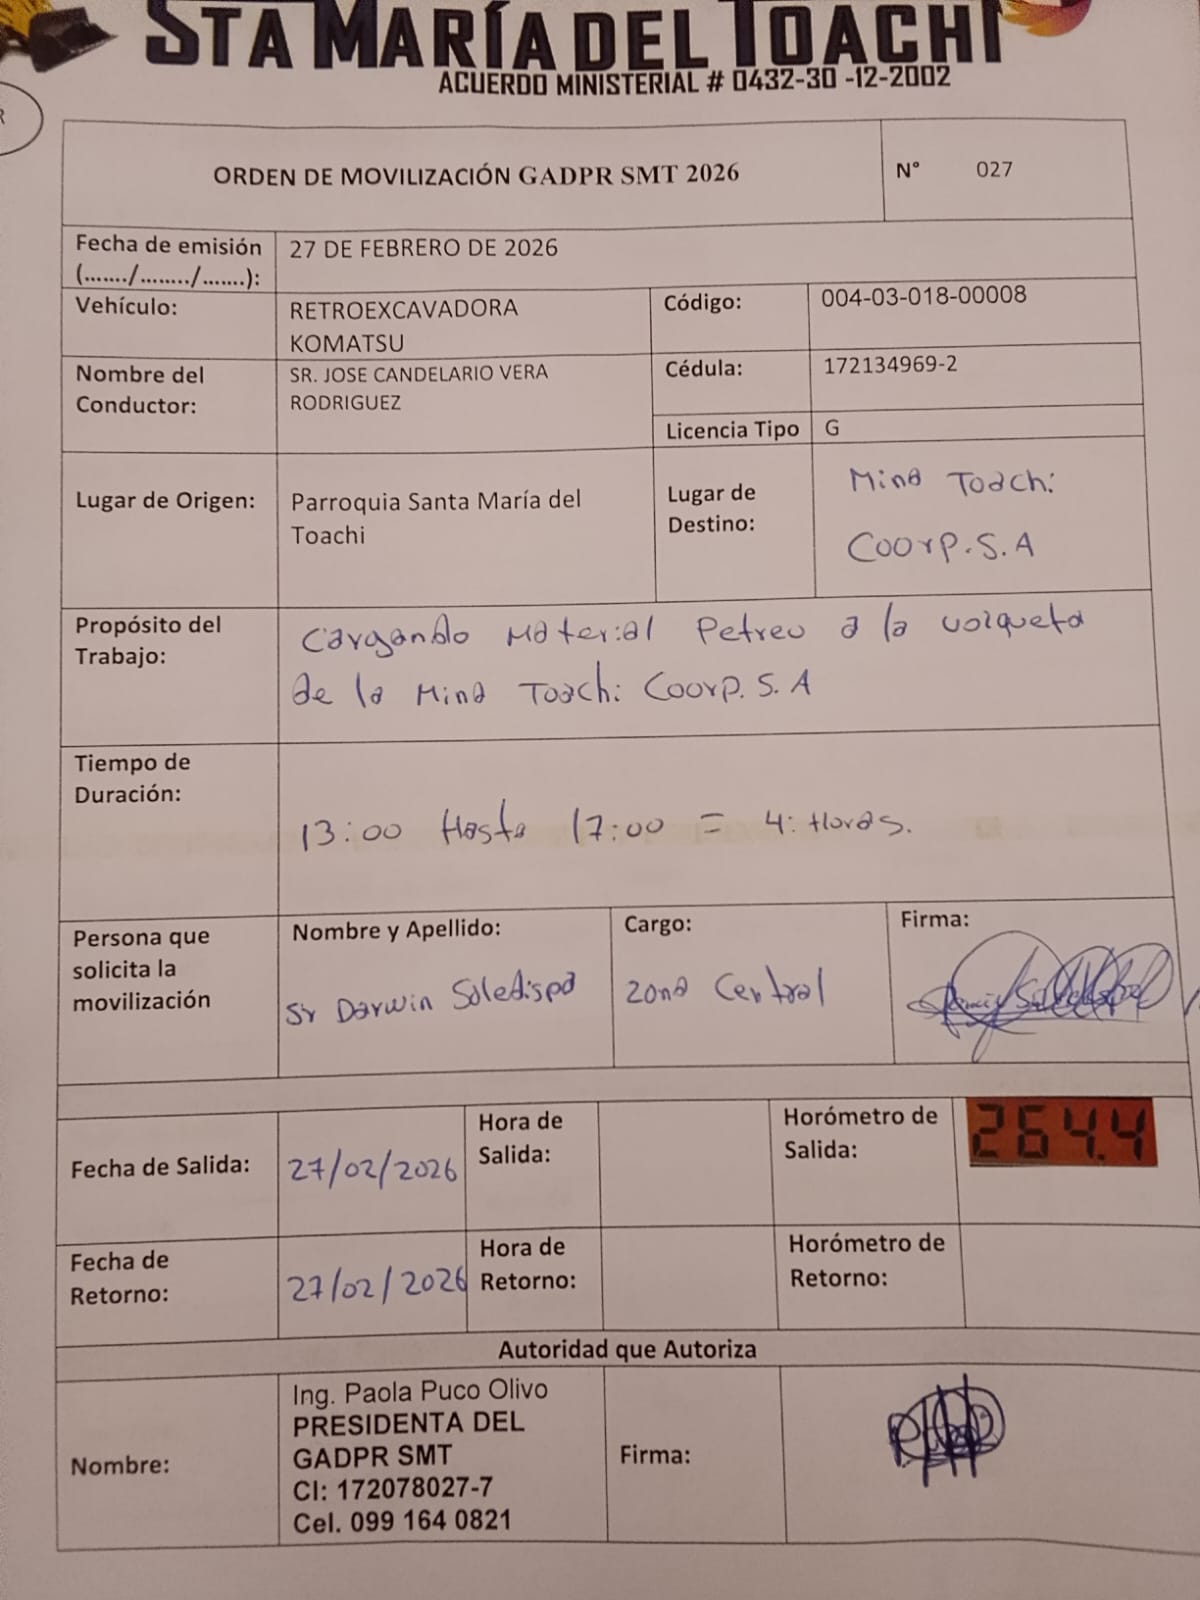 STA MARÍA DEL TOACHI
ACUERDO MINISTERIAL # 0432-30 -12-2002
ORDEN DE MOVILIZACIÓN GADPR SMT 2026
N° 027
Fecha de emisión
(......./......../.......):
27 DE FEBRERO DE 2026
Vehículo:
RETROEXCAVADORA
KOMATSU
Código:
004-03-018-00008
Nombre del
Conductor:
SR. JOSE CANDELARIO VERA
RODRIGUEZ
Cédula:
172134969-2
Licencia Tipo
G
Lugar de Origen:
Parroquia Santa María del
Toachi
Lugar de
Destino:
Mina Toachi
Coorp.S.A
Propósito del
Trabajo:
Cargando Material Petreo a la volqueta
de la Mina Toachi Coorp. S. A
Tiempo de
Duración:
13:00 Hasta 17:00 = 4: Horas.
Persona que
solicita la
movilización
Nombre y Apellido:
Sr Darwin Soledispa
Cargo:
Zona Central
Firma:
Fecha de Salida:
27/02/2026
Hora de
Salida:
Horómetro de
Salida:
264.4
Fecha de
Retorno:
27/02/2026
Hora de
Retorno:
Horómetro de
Retorno:
Autoridad que Autoriza
Nombre:
Ing. Paola Puco Olivo
PRESIDENTA DEL
GADPR SMT
CI: 172078027-7
Cel. 099 164 0821
Firma: